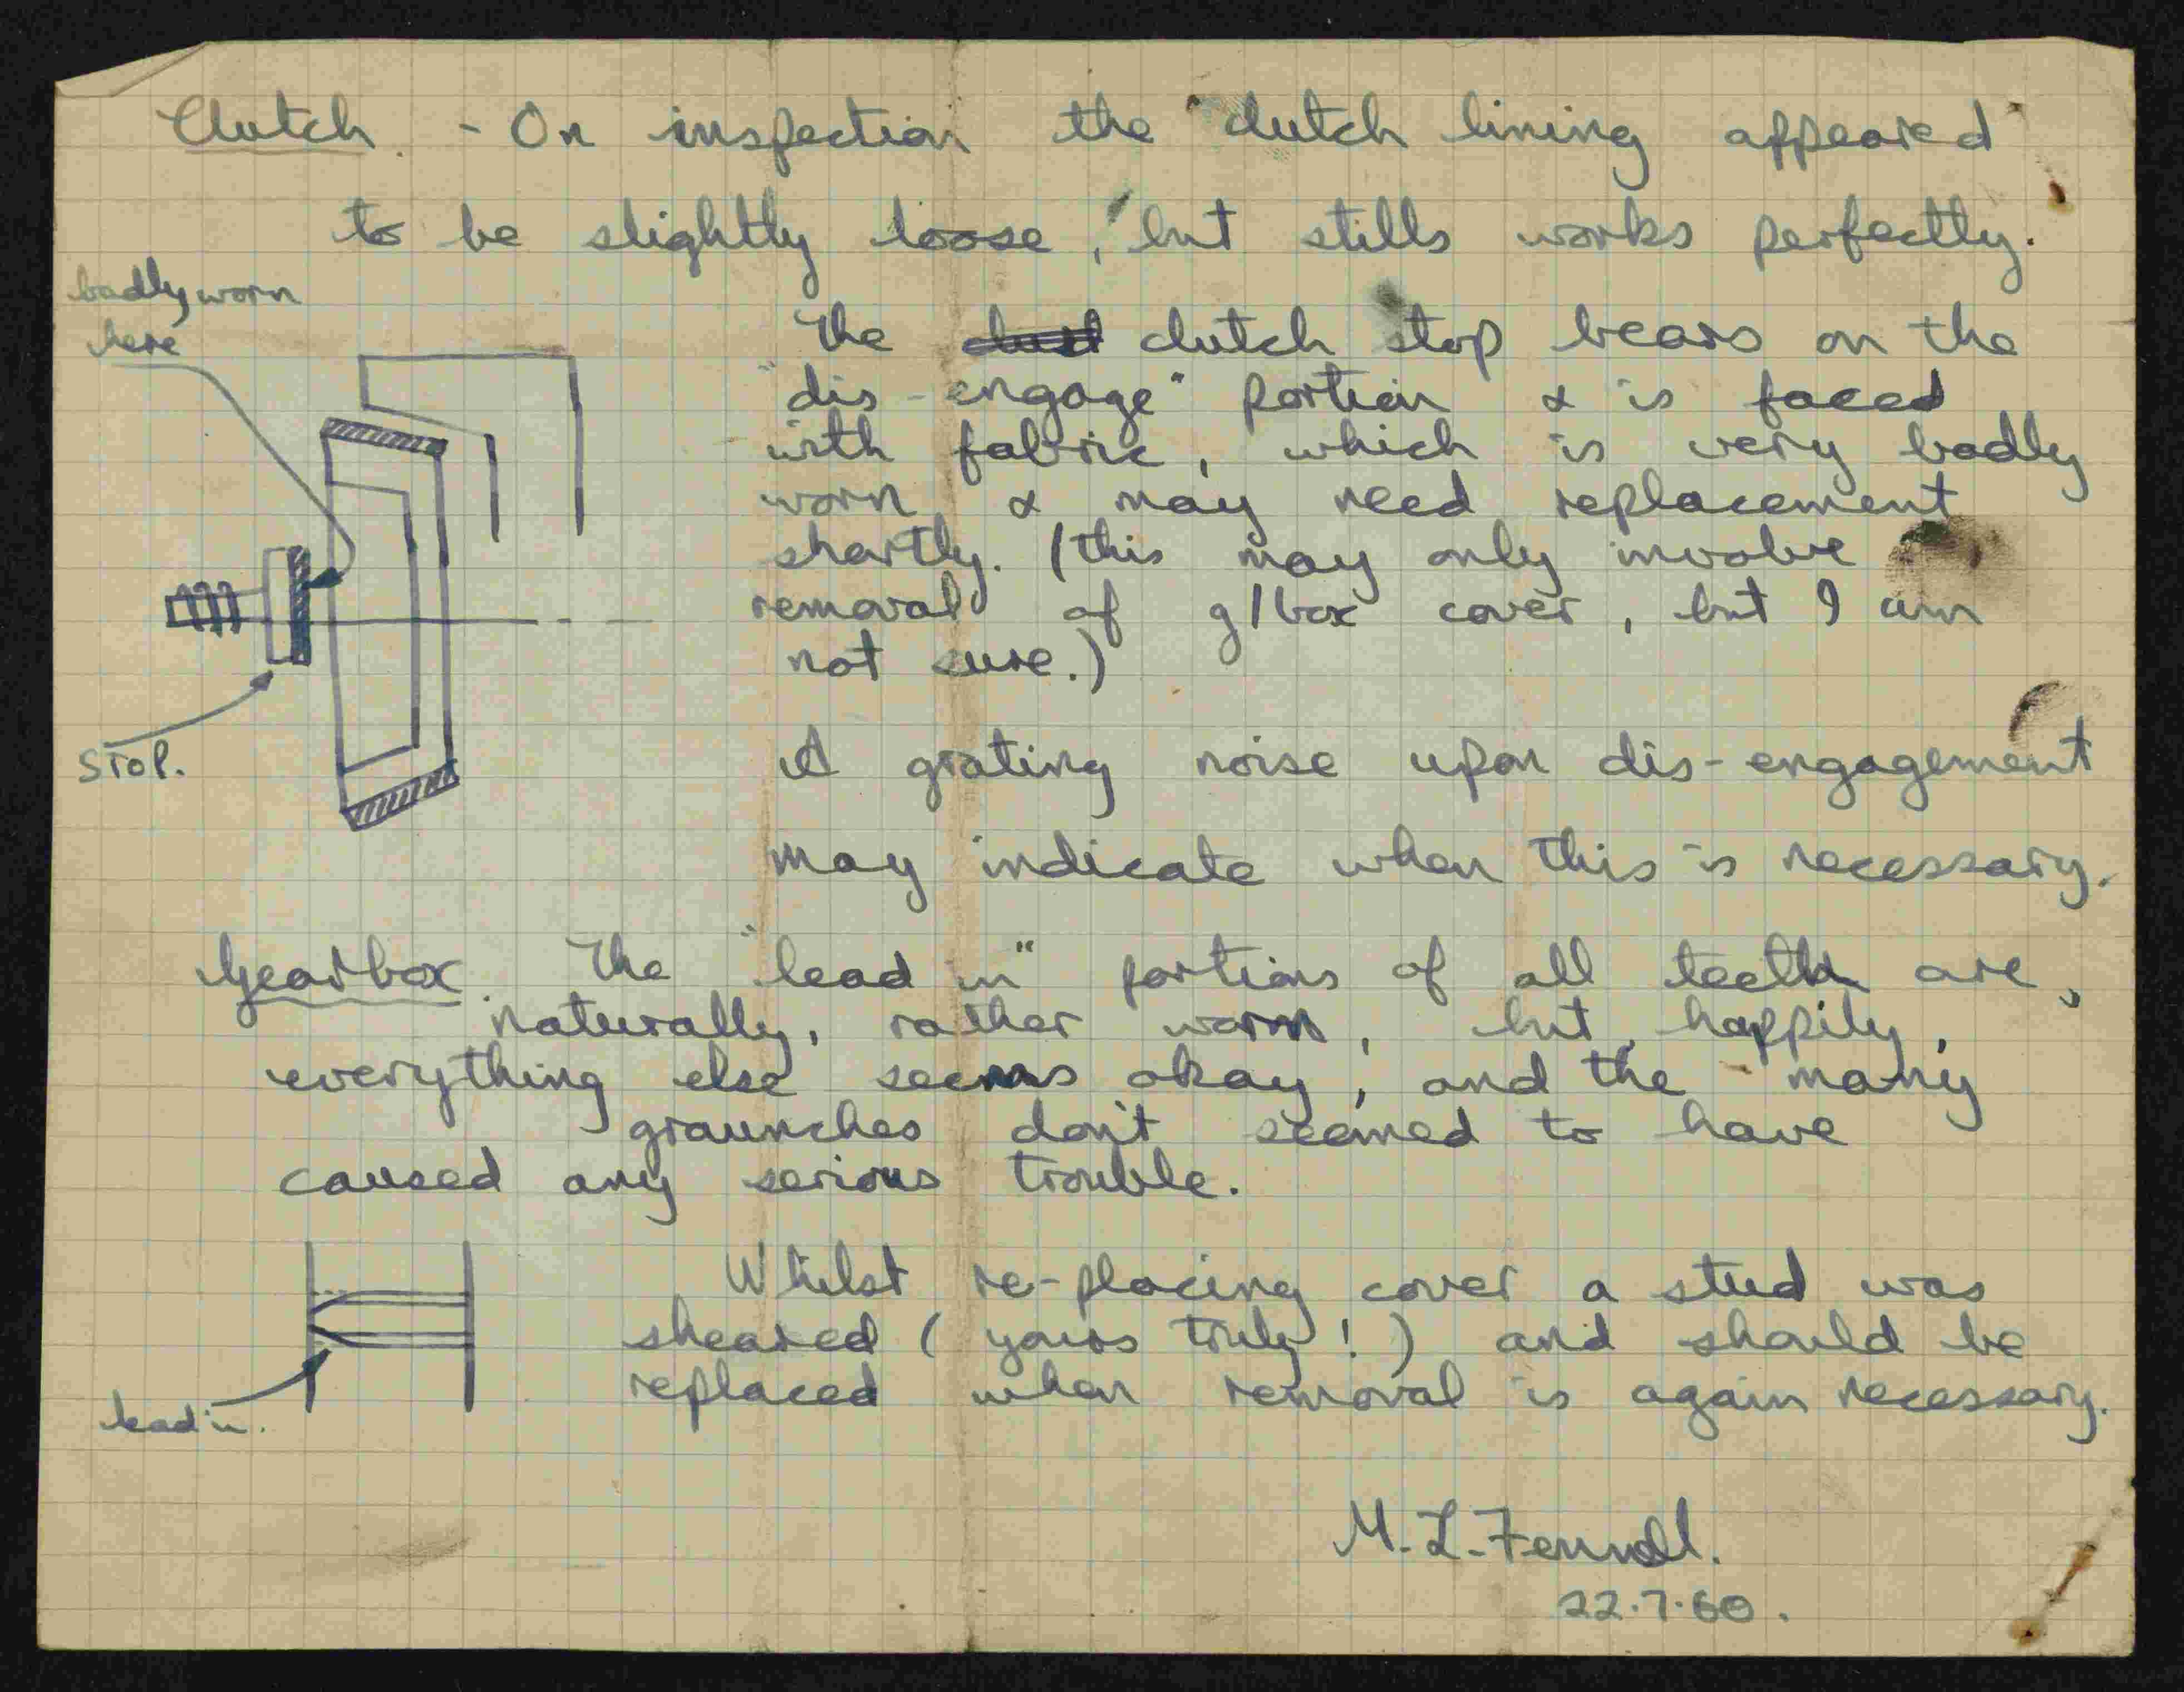 Clutch - On inspection the clutch lining appeared
to be slightly loose, but stills works perfectly.
badly worn
here
The clutch stop bears on the
"dis-engage" portion & is faced
with fabric, which is very badly
worn & may need replacement
shortly. (this may only involve
removal of g/box cover, but I am
not sure.)
STOP.
A grating noise upon dis-engagement
may indicate when this is necessary.
Gearbox. The "lead in" portions of all teeth are,
naturally, rather worn, but, happily,
everything else seems okay, and the many
graunches don't seemed to have
caused any serious trouble.
Whilst re-placing cover a stud was
sheared (yours truly!) and should be
replaced when removal is again necessary.
lead in.
M. L.
22.7.60.